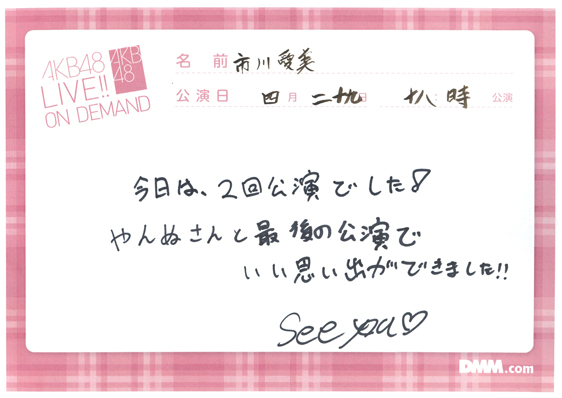 AKB48
LIVE!!
ON DEMAND
AKB
48
名 前 市川愛美
公演日 四 月 二十九 日 十八 : 時 公演
今日は、2回公演でした!
やんぬさんと最後の公演で
いい思い出ができました!!
See you♡
DMM.com